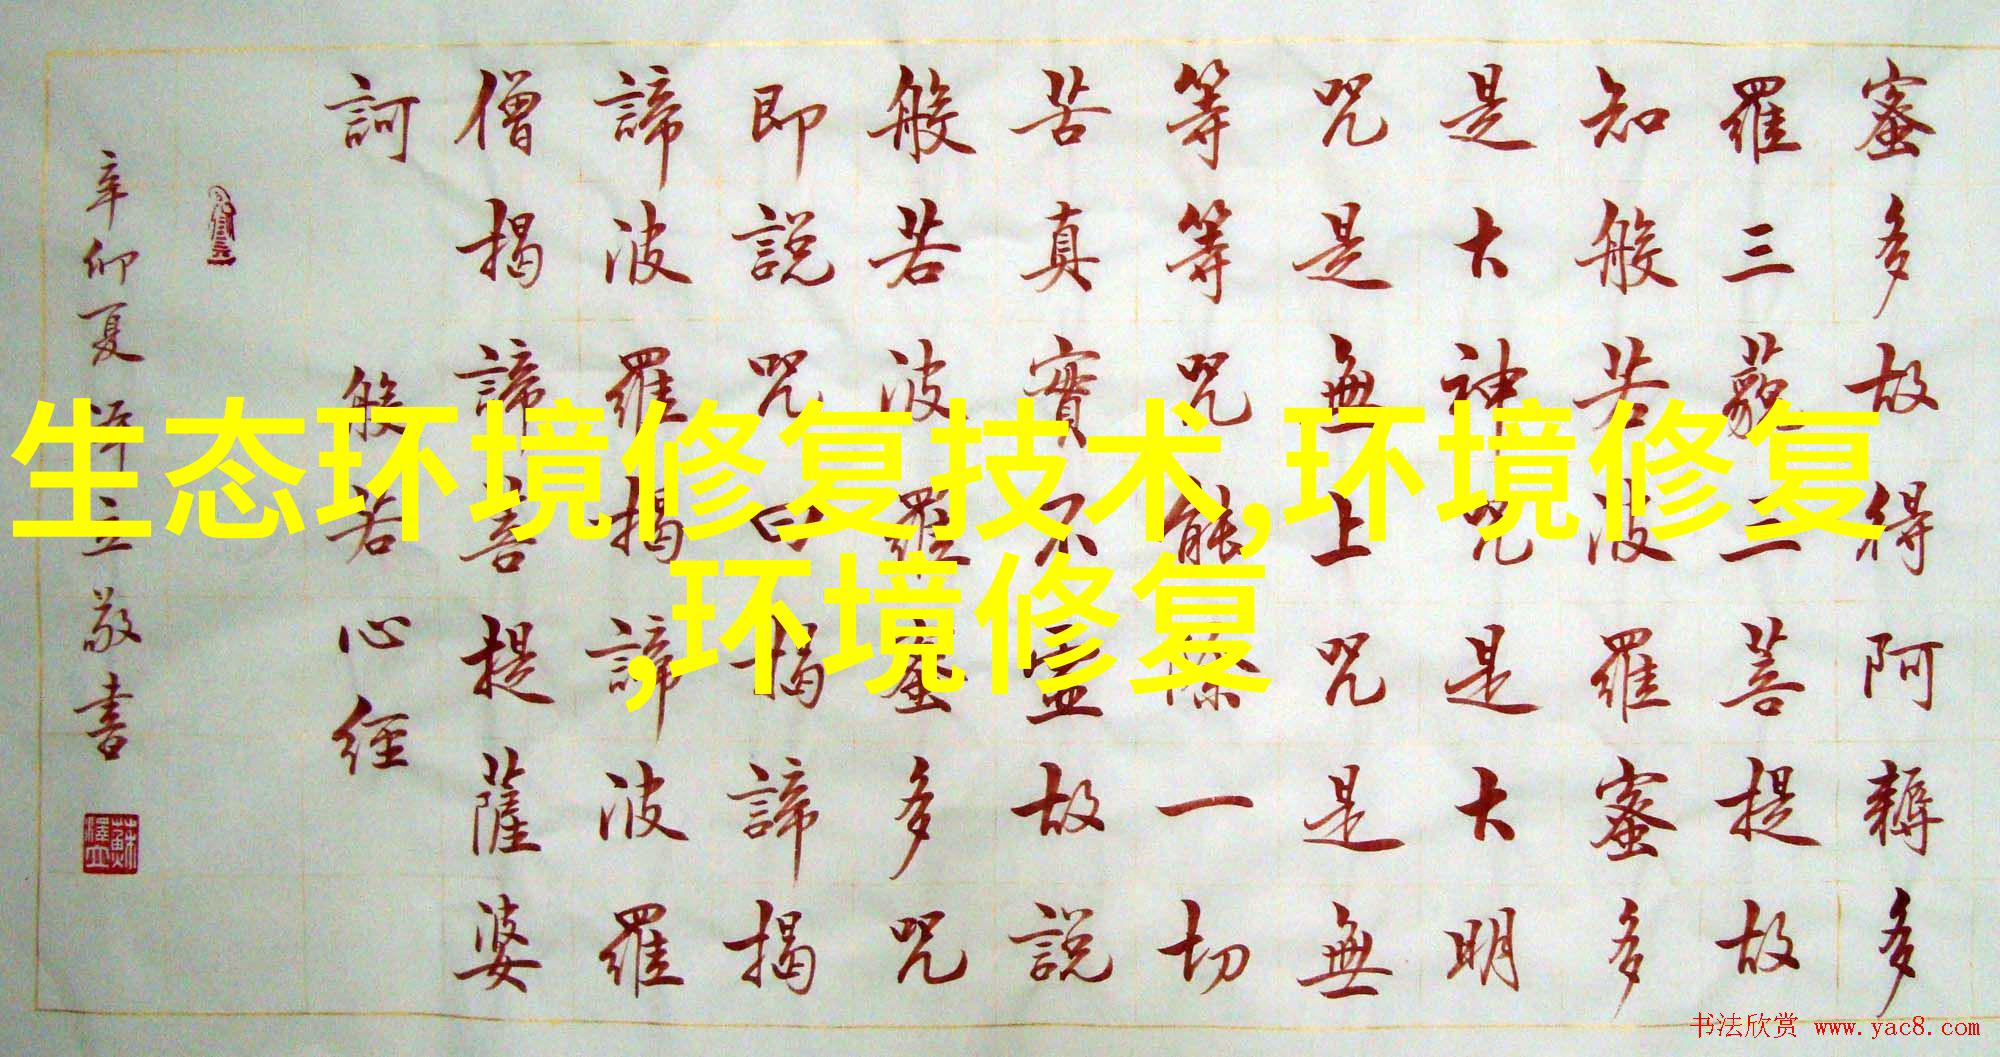 生态环境修复技术,环境修复
,环境修复
蜜多故得阿耨多
羅三藐三菩提故
知般若波羅蜜多
是大神咒是大明
咒是無上咒是無
等等咒能除一切
苦真實不虛故說
般若波羅蜜多咒
即說咒曰揭諦揭
諦波羅揭諦波羅
僧揭諦菩提薩婆
訶 般若心經
辛卯夏泽立敬書
蘇澤立
书法欣赏 www.yac8.com